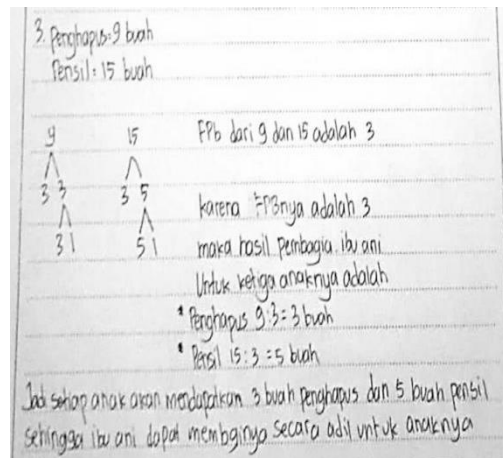 3. Penghapus: 9 buah
Pensil: 15 buah
9 15 FPb dari 9 dan 15 adalah 3
3 3 3 5
karena FPBnya adalah 3
3 1 5 1 maka hasil pembagia ibu ani
Untuk ketiga anaknya adalah
* Penghapus 9:3 = 3 buah
* Pensil 15:3 = 5 buah
Jadi setiap anak akan mendapatkan 3 buah penghapus dan 5 buah pensil
sehingga ibu ani dapat membginya secara adil untuk anaknya